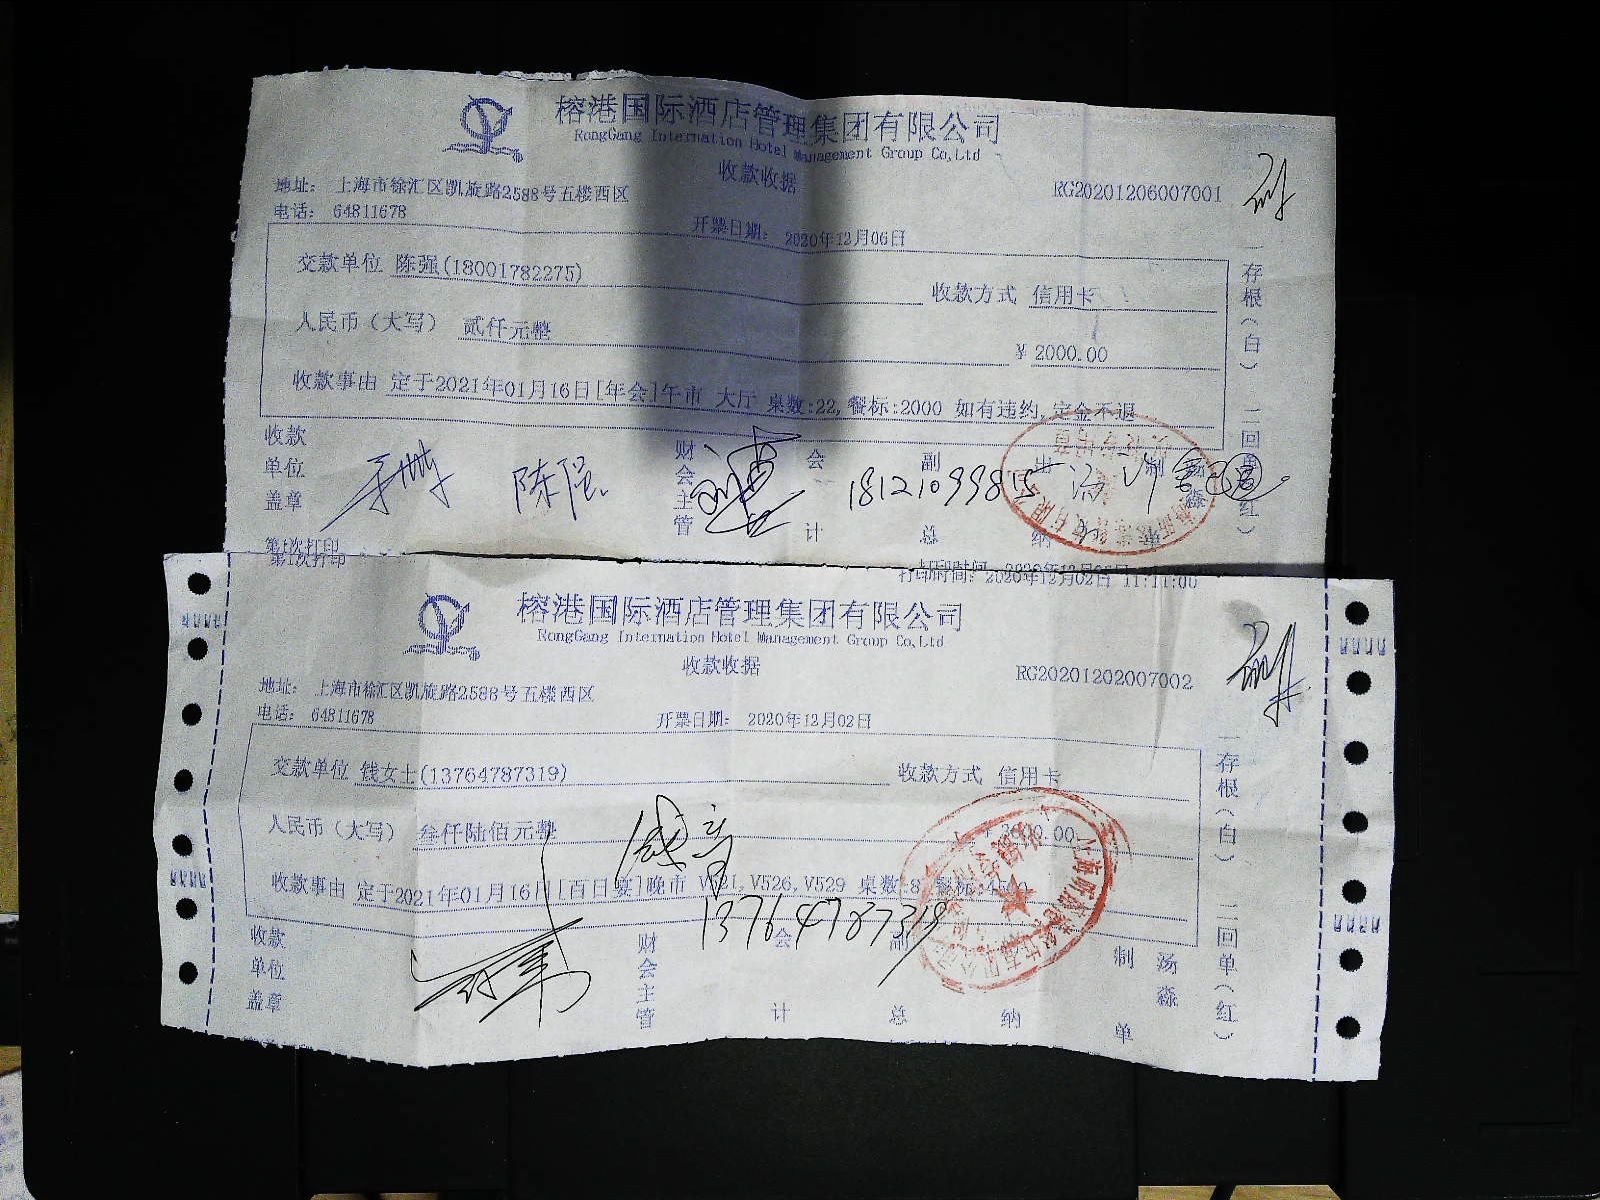 榕港国际酒店管理集团有限公司
RongGang Internation Hotel Management Group Co,Ltd
收款收据
地址: 上海市徐汇区凯旋路2588号五楼西区
RG20201206007001
电话: 64811678
开票日期: 2020年12月06日
交款单位 陈强(18001782275)
收款方式 信用卡
人民币（大写） 贰仟元整
¥ 2000.00
收款事由 定于2021年01月16日[年会]午市 大厅 桌数:22,餐标:2000 如有违约,定金不退
存根（白） 二回单（红）
收款单位盖章
陈强
财会主管
会计
副总
18121099815
出纳
制单
汤淼
第1次打印
第1次打印
打印时间: 2020年12月02日 11:11:00
榕港国际酒店管理集团有限公司
RongGang Internation Hotel Management Group Co,Ltd
收款收据
地址: 上海市徐汇区凯旋路2588号五楼西区
RG20201202007002
电话: 64811678
开票日期: 2020年12月02日
交款单位 钱女士(13764787319)
收款方式 信用卡
人民币（大写） 叁仟陆佰元整
收款事由 定于2021年01月16日[百日宴]晚市 V521,V526,V529 桌数:8
13764787319
一存根（白） 二回单（红）
收款单位盖章
财会主管
会计
副总
纳
制单
汤淼